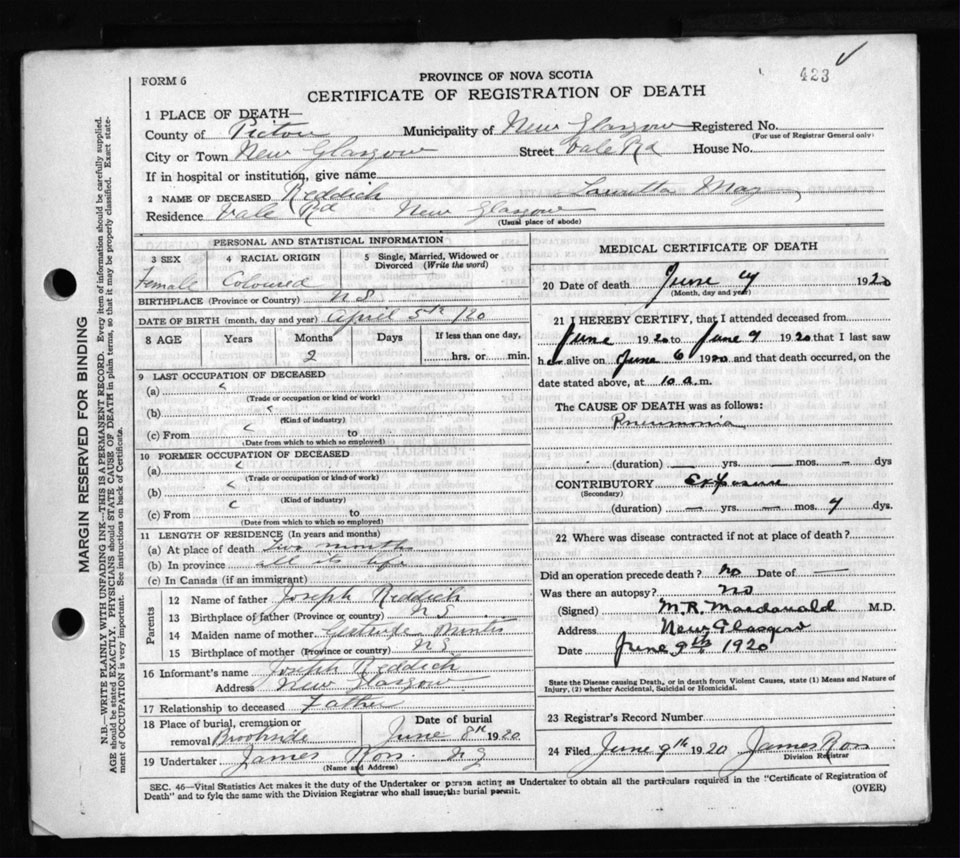 423
FORM 6
PROVINCE OF NOVA SCOTIA
CERTIFICATE OF REGISTRATION OF DEATH
1 PLACE OF DEATH—
County of Pictou Municipality of New Glasgow Registered No.
(For use of Registrar General only)
City or Town New Glasgow Street Vale Rd House No.
If in hospital or institution, give name
2 NAME OF DECEASED Reddick Lauretta May
Residence Vale Rd New Glasgow
(Usual place of abode)
PERSONAL AND STATISTICAL INFORMATION
3 SEX 4 RACIAL ORIGIN 5 Single, Married, Widowed or Divorced (Write the word)
Female Coloured
BIRTHPLACE (Province or Country) N S
DATE OF BIRTH (month, day and year) April 5th /20
8 AGE Years Months Days If less than one day,
2 hrs. or min.
9 LAST OCCUPATION OF DECEASED
(a)
(Trade or occupation or kind or work)
(b)
(Kind of industry)
(c) From to
(Date from which to which so employed)
10 FORMER OCCUPATION OF DECEASED
(a)
(Trade or occupation or kind of work)
(b)
(Kind of industry)
(c) From to
(Date from which to which so employed)
11 LENGTH OF RESIDENCE (In years and months)
(a) At place of death two months
(b) In province all its life
(c) In Canada (if an immigrant)
Parents
12 Name of father Joseph Reddick
13 Birthplace of father (Province or country) N S
14 Maiden name of mother Gertrude
15 Birthplace of mother (Province or country) N S
16 Informant's name Joseph Reddick
Address New Glasgow
17 Relationship to deceased Father
18 Place of burial, cremation or removal Brookside
Date of burial
June 8th 1920
19 Undertaker James Ross N G
(Name and Address)
MEDICAL CERTIFICATE OF DEATH
20 Date of death June 1920
(Month, day and year)
21 I HEREBY CERTIFY, that I attended deceased from
June 1920 to June 9 1920 that I last saw
her alive on June 6 1920 and that death occurred, on the
date stated above, at 10 a.m.
The CAUSE OF DEATH was as follows:
Pneumonia
(duration) — yrs. — mos. — dys
CONTRIBUTORY Exposure
(Secondary)
(duration) — yrs. — mos. dys.
22 Where was disease contracted if not at place of death?
Did an operation precede death? no Date of —
Was there an autopsy? no
(Signed) M.R. Macdonald M.D.
Address New Glasgow
Date June 9th 1920
State the Disease causing Death, or in death from Violent Causes, state (1) Means and Nature of Injury, (2) whether Accidental, Suicidal or Homicidal.
23 Registrar's Record Number
24 Filed June 9th 1920 James Ross
Division Registrar
SEC. 46—Vital Statistics Act makes it the duty of the Undertaker or person acting as Undertaker to obtain all the particulars required in the "Certificate of Registration of
Death" and to fyle the same with the Division Registrar who shall issue the burial permit.
(OVER)
MARGIN RESERVED FOR BINDING
N.B.—WRITE PLAINLY WITH UNFADING INK—THIS IS A PERMANENT RECORD. Every item of information should be carefully supplied.
AGE should be stated EXACTLY. PHYSICIANS should STATE CAUSE OF DEATH in plain terms, so that it may be properly classified. Exact statement of OCCUPATION is very important. See instructions on back of Certificate.